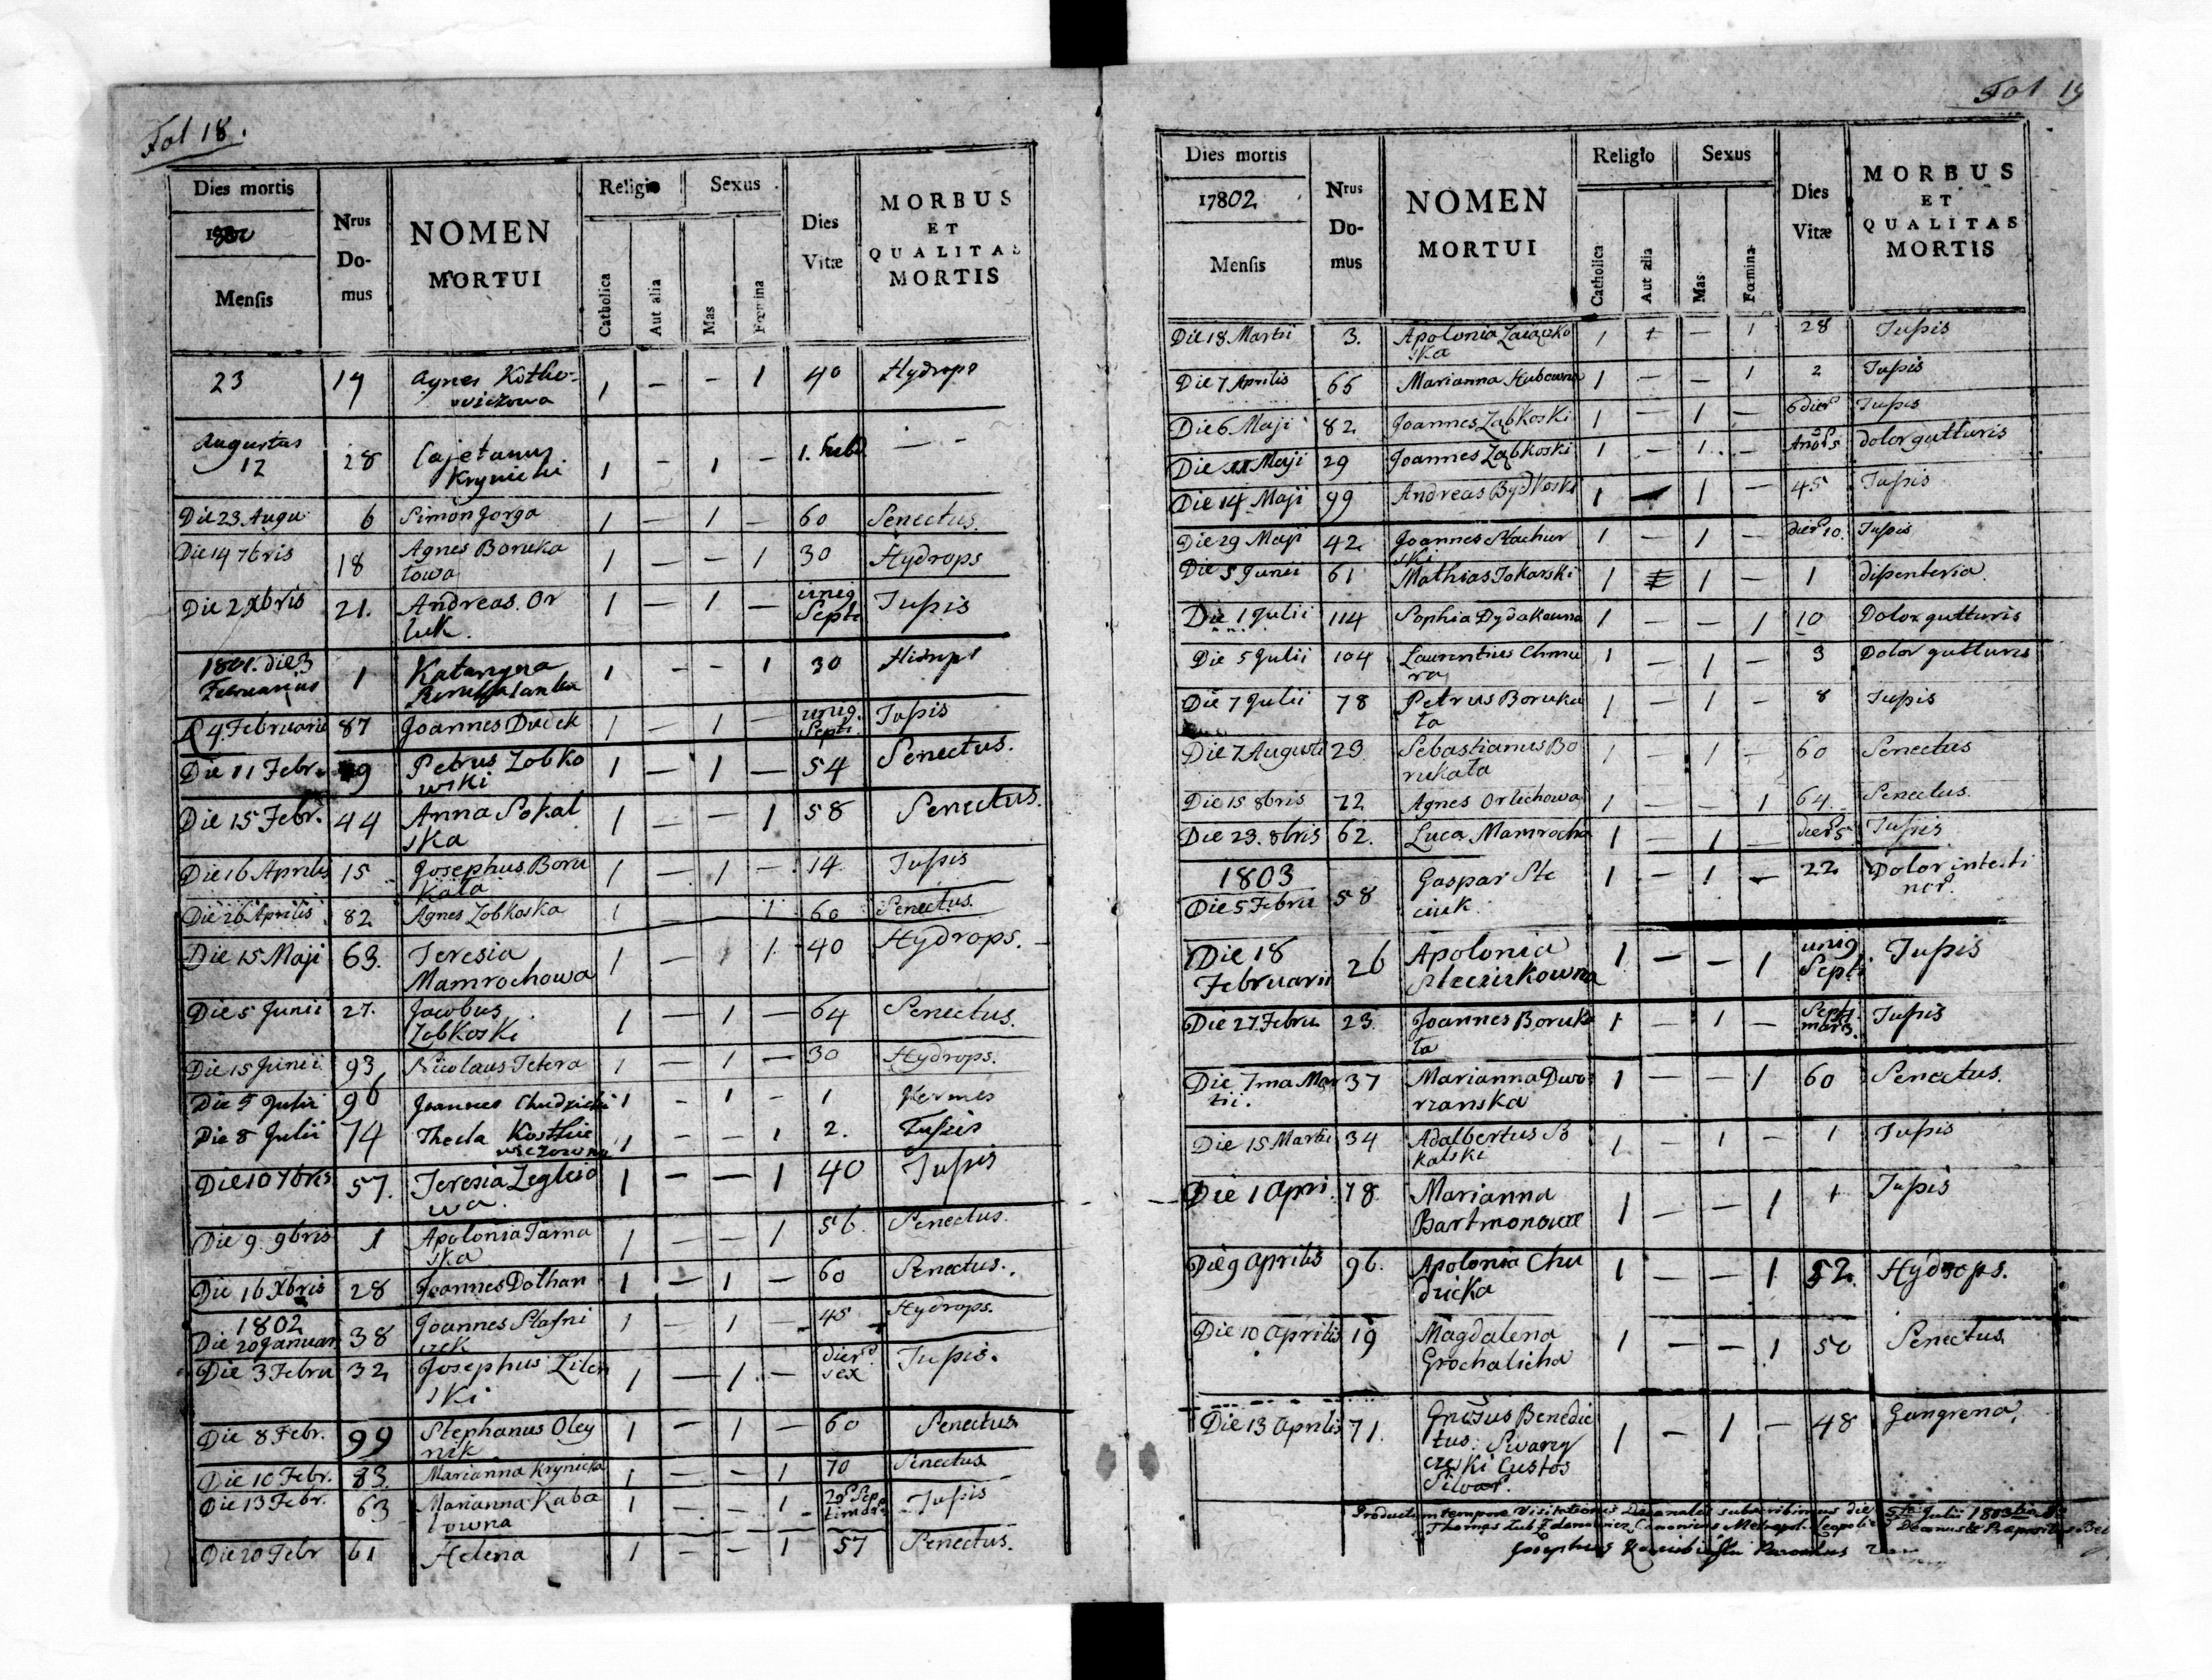 Fol 18.
Dies mortis
Mensis
Nrus
Do-
mus
NOMEN
MORTUI
Religio
Catholica
Aut alia
Sexus
Mas
Fœmina
Dies
Vitæ
MORBUS
ET
QUALITAS
MORTIS
23 19 Agnes Kotho- 1 – – 1 40 Hydrops
wiczowa
Augustus
12 28 Cajetanus 1 – 1 – 1. hebd – –
Krynicki
Die 23 Augu 6 Simon Jorga 1 – 1 – 60 Senectus.
Die 14 7bris 18 Agnes Boruka 1 – – 1 30 Hydrops
towa
Die 2 Xbris 21. Andreas Or 1 – 1 – unig Tussis
luk. Septi
1801. die 3 1 Kataryna 1 – – 1 30
Februarius
4 Februarii 87 Joannes Duick 1 – 1 – unig. Tussis
Septi.
Die 11 Febr. 9 Petrus Zobko 1 – 1 – 54 Senectus.
wski
Die 15 Febr. 44 Anna Sokal 1 – – 1 58 Senectus.
ska
Die 16 Aprilis 15 Josephus Boru 1 – 1 – 14 Tussis
kata
Die 26 Aprilis 82 Agnes Zobkoska 1 – 1 60 Senectus.
Die 15 Maji 63. Teresia 1 – 1 40 Hydrops.
Mamrochowa
Die 5 Junii 27. Jacobus 1 – 1 – 64 Senectus.
Zobkoski
Die 15 Junii 93 Nicolaus Tetera 1 – 1 – 30 Hydrops.
Die 5 Julii 96 Joannes Chudzicki 1 – 1 – 1 Vermes
Die 8 Julii 74 Thecla Kosthie 1 – – 1 2. Tussis
wiczowna
Die 10 7bris 57. Teresia Zeglicio 1 – – 1 40 Tussis
wa.
Die 9 9bris 1 Apolonia Tarna 1 – – 1 56. Senectus.
ska
Die 16 Xbris 28 Joannes Dolhan 1 – 1 – 60 Senectus.
1802
Die 20 Januar 38 Joannes Stasni 1 – 1 – 45 Hydrops.
czek
Die 3 Febru 32 Josephus Zilen 1 – 1 – dier. Tussis.
ski sex
Die 8 Febr. 99 Stephanus Oley 1 – 1 – 60 Senectus
nik
Die 10 Febr. 83. Marianna Krynicka 1 – – 1 70 Senectus
Die 13 Febr. 63 Marianna Kaba 1 – – 1 Tussis
towna
Die 20 Febr 61 Helena 1 – – 1 57 Senectus.
Fol 19
Dies mortis
17802
Mensis
Nrus
Do-
mus
NOMEN
MORTUI
Religio
Catholica
Aut alia
Sexus
Mas
Fœmina
Dies
Vitæ
MORBUS
ET
QUALITAS
MORTIS
Die 18 Martii 3. Apolonia Zaiaczko 1 1 – 1 28 Tussis
ska
Die 7 Aprilis 66 Marianna Kubowna 1 – – 1 2 Tussis
Die 6 Maji 82 Joannes Zabkoski 1 – 1 – 6 dier Tussis
Die 11 Maji 29 Joannes Zabkoski 1 – 1 – dolor gutturis
Die 14 Maji 99 Andreas Bydkoski 1 – 1 – 45 Tussis
Die 29 Maji 42 Joannes Stachur 1 – 1 – dier 10. Tussis
ski
Die 5 Junii 61 Mathias Tokarski 1 1 – 1 dissenteria
Die 1 Julii 114 Sophia Dydakowna 1 – – 1 10 Dolor gutturis
Die 5 Julii 104 Laurentius Chmu 1 – 1 – 3 Dolor gutturis
ra
Die 7 Julii 78 Petrus Boruka 1 – 1 – 8 Tussis
ta
Die 7 Augusti 23. Sebastianus Bo 1 – 1 – 60 Senectus
rukata
Die 15 8bris 72 Agnes Orlichowa 1 – – 1 64. Senectus.
Die 23. 8bris 62. Luca Mamrocha 1 – 1 – dier 5 Tussis
1803
Die 5 Febru 58 Gaspar Ste 1 – 1 – 22 Dolor intesti
ciuk. nor.
Die 18 26 Apolonia 1 – – 1 unig Tussis
Februarii Steciukowna Septi
Die 27 Febru 23. Joannes Boruka 1 – 1 – Septi Tussis
ta mar 3.
Die 7ma Mar 37 Marianna Dwo 1 – – 1 60 Senectus.
tii. rzanska
Die 15 Martii 34 Adalbertus So 1 – 1 – 1 Tussis
kalski
Die 1 Apri. 78. Marianna 1 – – 1 1 Tussis
Bartmonowa
Die 9 Aprilis 96. Apolonia Chu 1 – – 1 52. Hydrops.
dzicka
Die 10 Aprilis 19 Magdalena 1 – – 1 50 Senectus
Grochalicha
Die 13 Aprilis 71. Gnosus Benedic 1 – 1 – 48 Gangrena,
tus Swary
czeski Custos
Silvar.
Productum tempore Visitationis Decanalis subscribimus die 5ta Julii 1803
Thomas Canonicus Metropol. Leopolien Decanus et Praepositus
Josephus Parochus